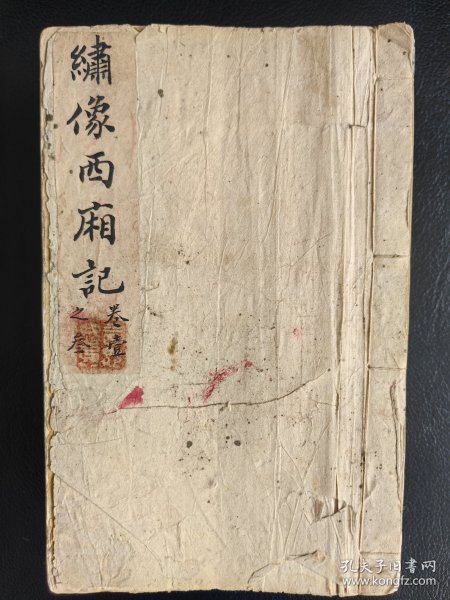 繡像西廂記
卷壹
之叁
孔夫子旧书网
www.kongfz.com